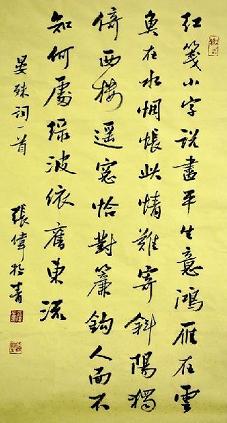 紅箋小字說盡平生意鴻雁在雲
魚在水惆悵此情難寄斜陽獨
倚西樓遥窓恰對簾鈎人面不
知何處緑波依舊東流
晏殊詞一首 張偉於青